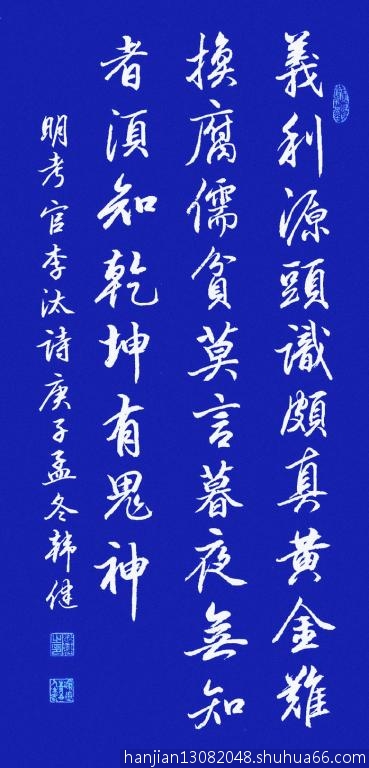 義利源頭識頗真黃金難
換腐儒貧莫言暮夜無知
者須知乾坤有鬼神
明考官李汰詩庚子孟冬韩健
hanjian13082048.shuhua66.com